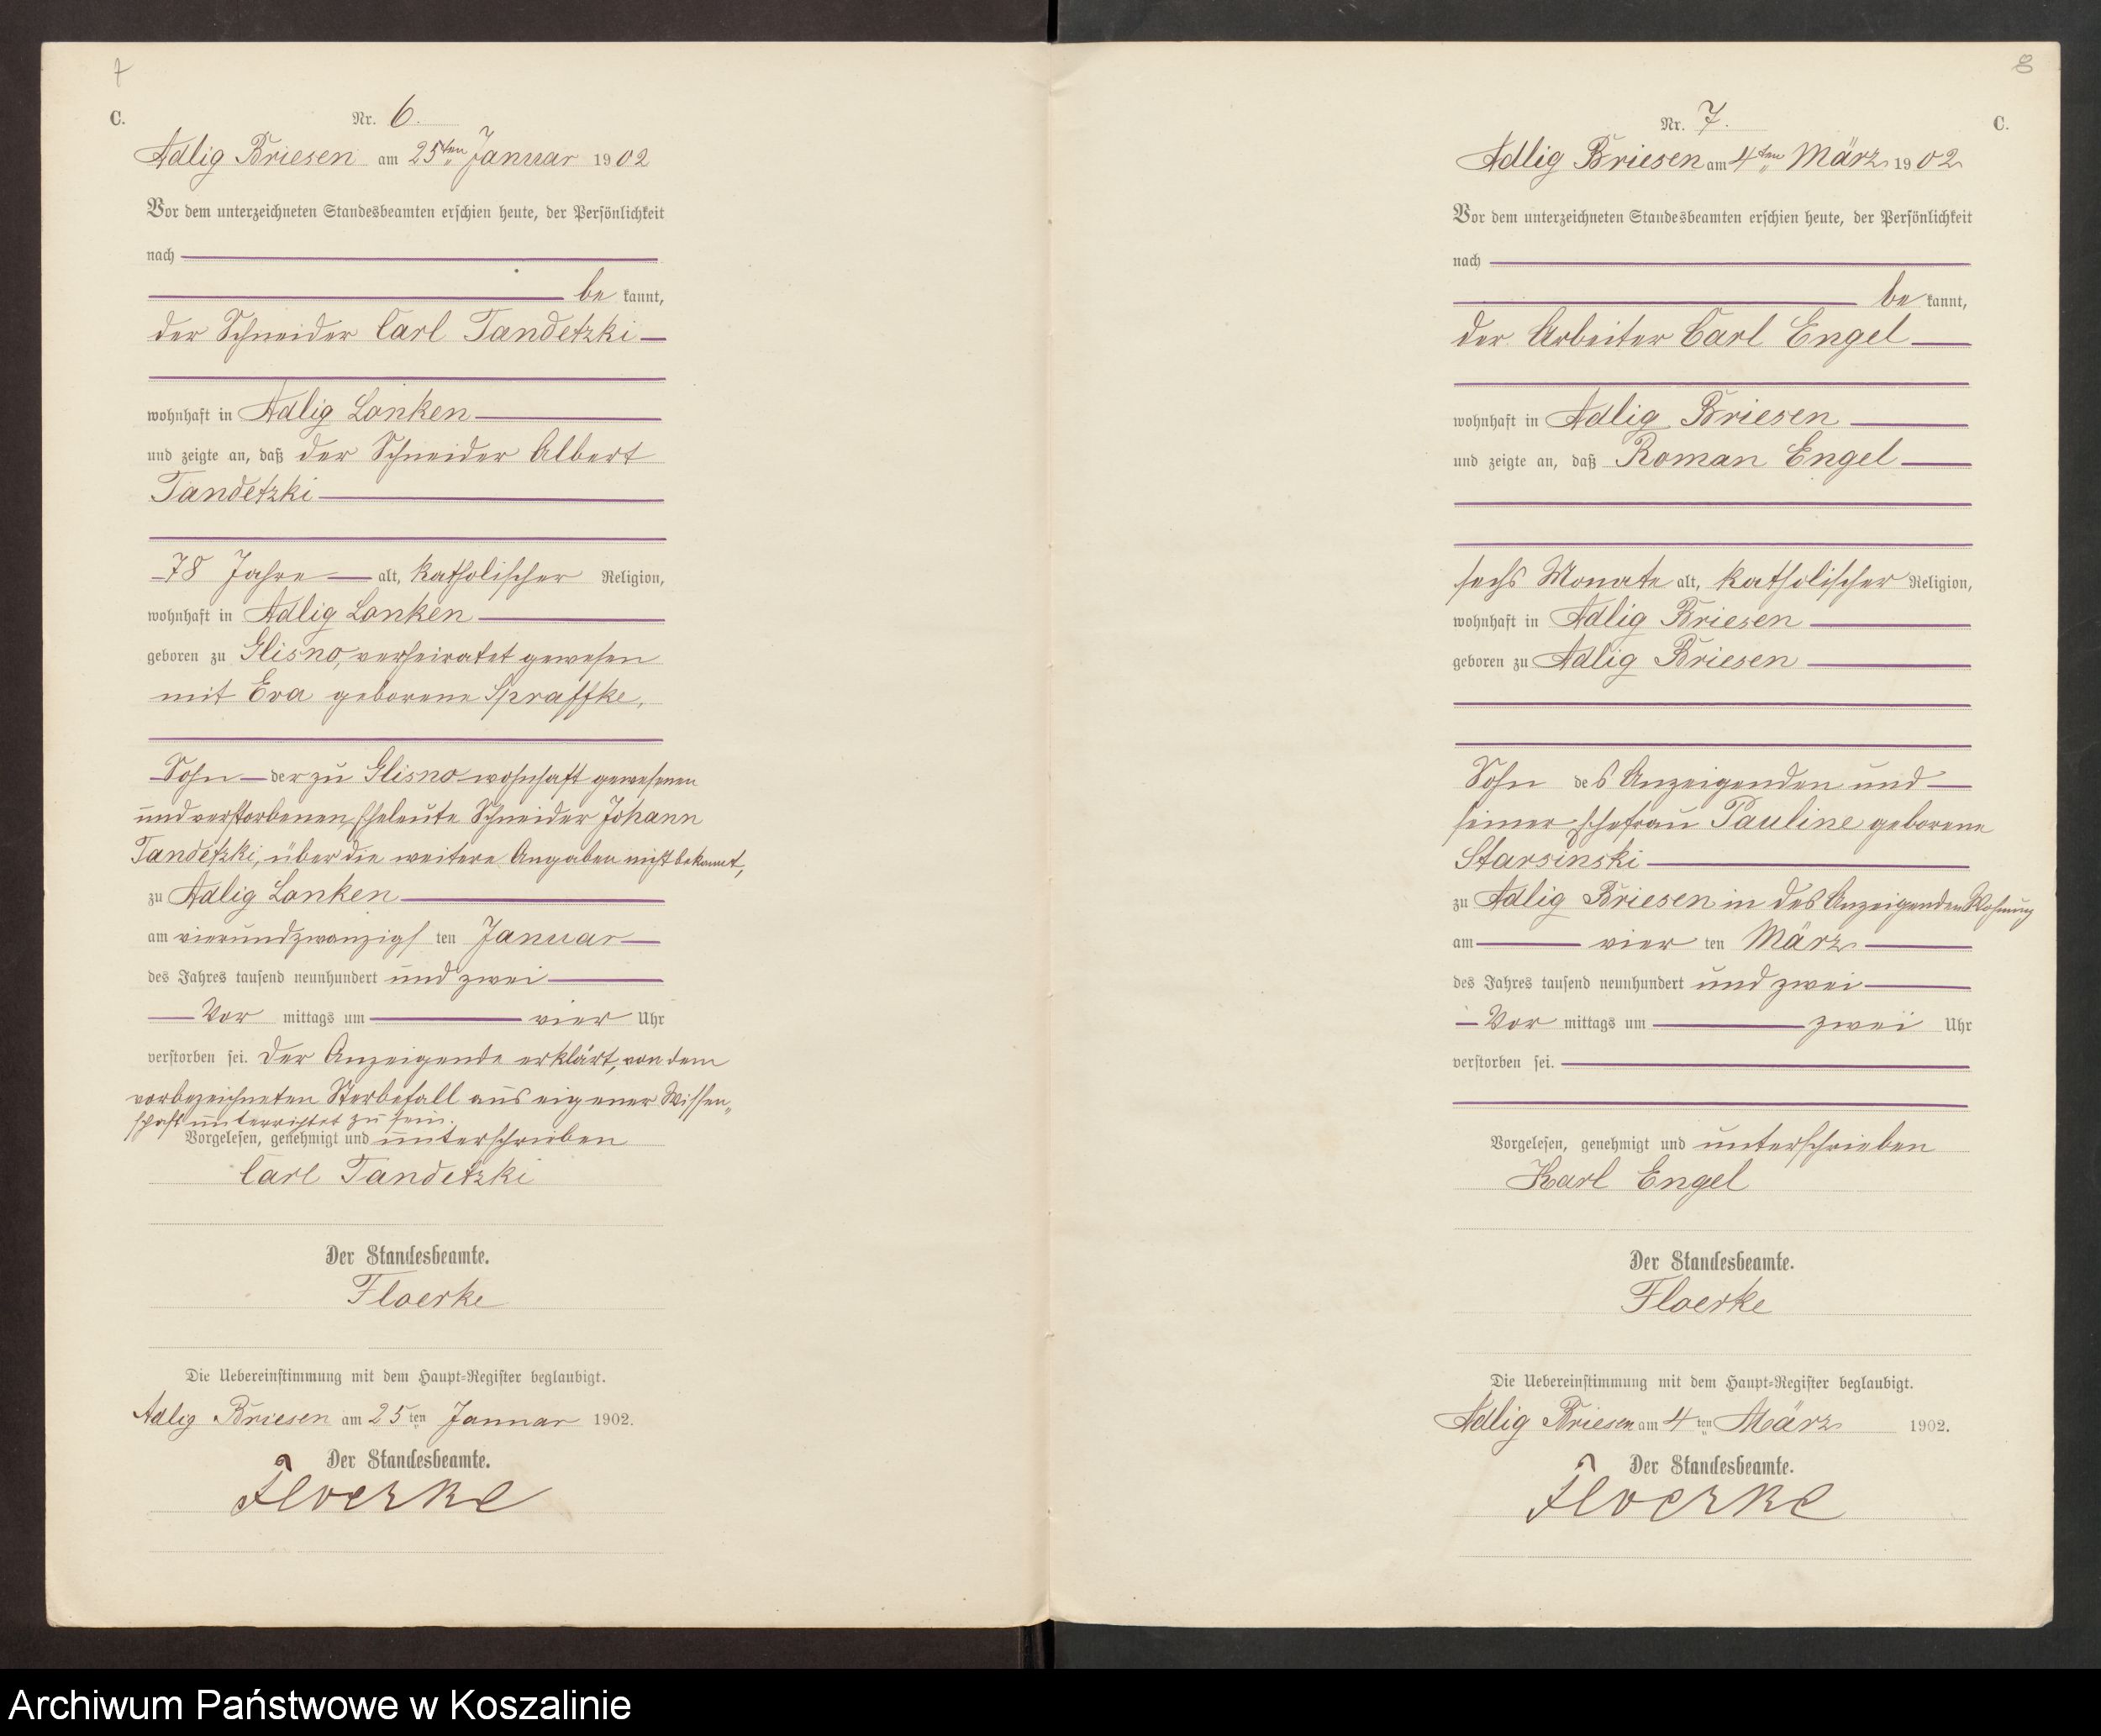 7
C.
Nr. 6.
Adlig Briesen am 25ten Januar 1902
Vor dem unterzeichneten Standesbeamten erschien heute, der Persönlichkeit
nach
be kannt,
der Schneider Carl Tandetzki
wohnhaft in Adlig Lonken
und zeigte an, daß der Schneider Albert
Tandetzki
78 Jahre alt, katholischer Religion,
wohnhaft in Adlig Lonken
geboren zu Glisno, verheiratet gewesen
mit Eva geborene Spraffke,
Sohn der zu Glisno wohnhaft gewesenen
und verstorbenen Eheleute Schneider Johann
Tandetzki, über die weitere Angaben nicht bekannt,
zu Adlig Lonken
am vierundzwanzigsten Januar
des Jahres tausend neunhundert und zwei
Vor mittags um vier Uhr
verstorben sei. Der Anzeigende erklärt, von dem
vorbezeichneten Sterbefall aus eigener Wissen„
schaft unterrichtet zu sein.
Vorgelesen, genehmigt und unterschrieben
Carl Tandetzki
Der Standesbeamte.
Floerke
Die Uebereinstimmung mit dem Haupt-Register beglaubigt.
Adlig Briesen am 25ten Januar 1902.
Der Standesbeamte.
Floerke
8
C.
Nr. 7.
Adlig Briesen am 4ten März 1902
Vor dem unterzeichneten Standesbeamten erschien heute, der Persönlichkeit
nach
be kannt,
der Arbeiter Carl Engel
wohnhaft in Adlig Briesen
und zeigte an, daß Roman Engel
sechs Monate alt, katholischer Religion,
wohnhaft in Adlig Briesen
geboren zu Adlig Briesen
Sohn des Anzeigenden und
seiner Ehefrau Pauline geborene
Starsinski
zu Adlig Briesen in des Anzeigenden Wohnung
am vier ten März
des Jahres tausend neunhundert und zwei
Vor mittags um zwei Uhr
verstorben sei.
Vorgelesen, genehmigt und unterschrieben
Karl Engel
Der Standesbeamte.
Floerke
Die Uebereinstimmung mit dem Haupt-Register beglaubigt.
Adlig Briesen am 4ten März 1902.
Der Standesbeamte.
Floerke
Archiwum Państwowe w Koszalinie